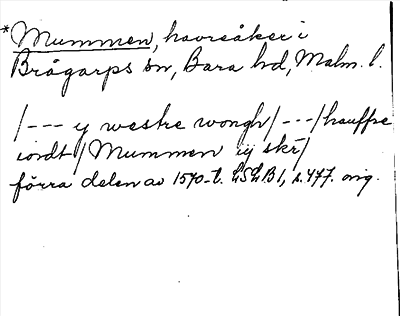 *Mummen, havreåker i
Brågarps sn, Bara hd, Malm. l.
/--- y westre wongh/---/hauffre
iordt/Mummen iij skr/
förra delen av 1570-t. LSLB1, s. 477. orig.